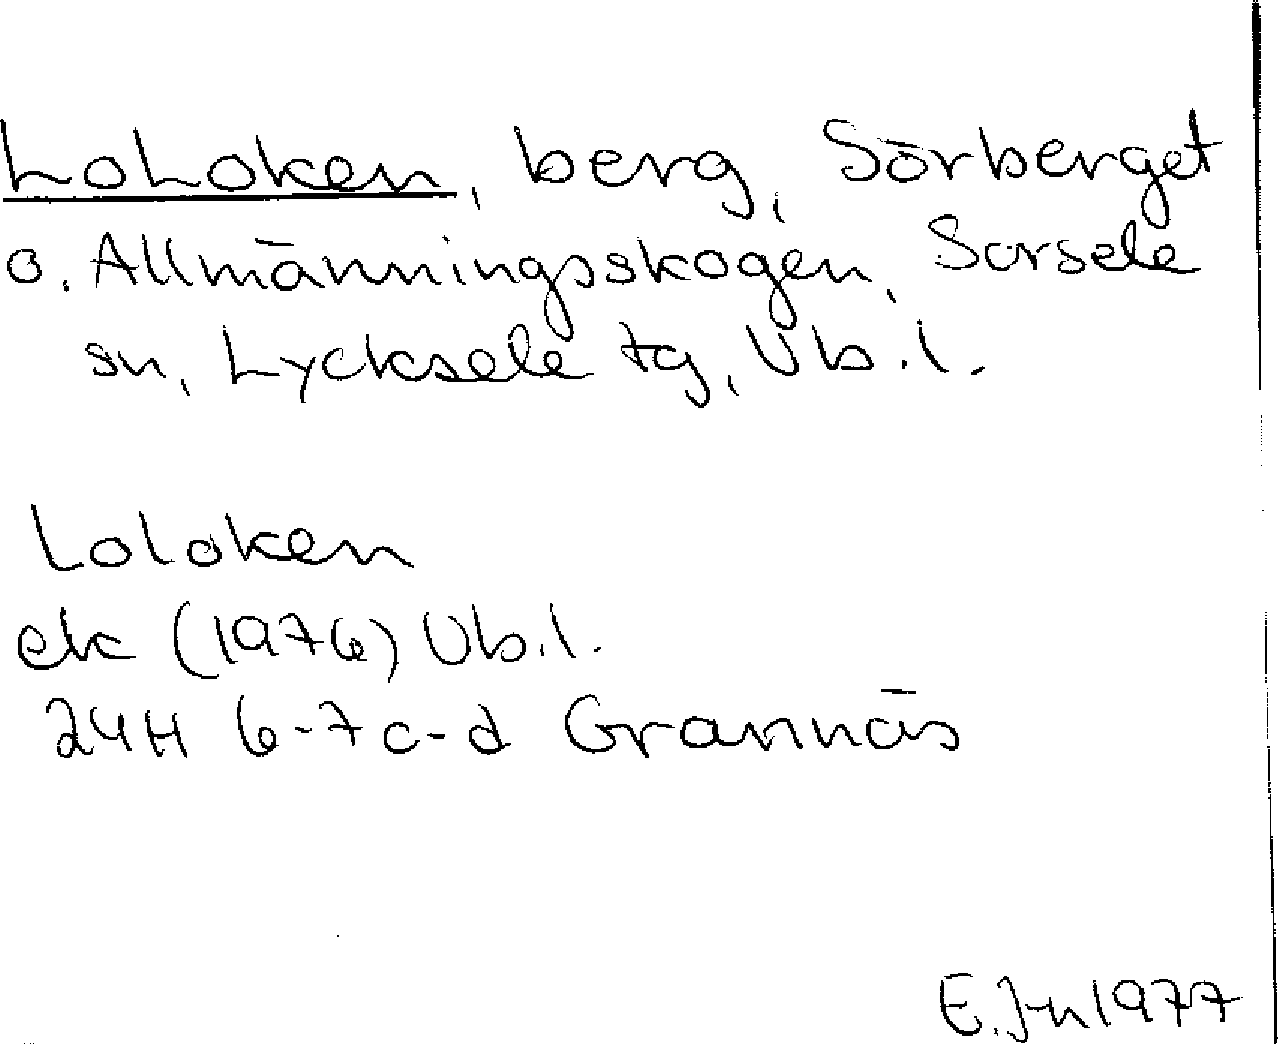 LoLoken, berg, Sörberget
o. Allmänningsskogen, Sorsele
sn, Lycksele tg, Vb.l.
Loloken
ek (1976) Vb.l.
24H 6-7c-d Grannäs
E. Jn 1977